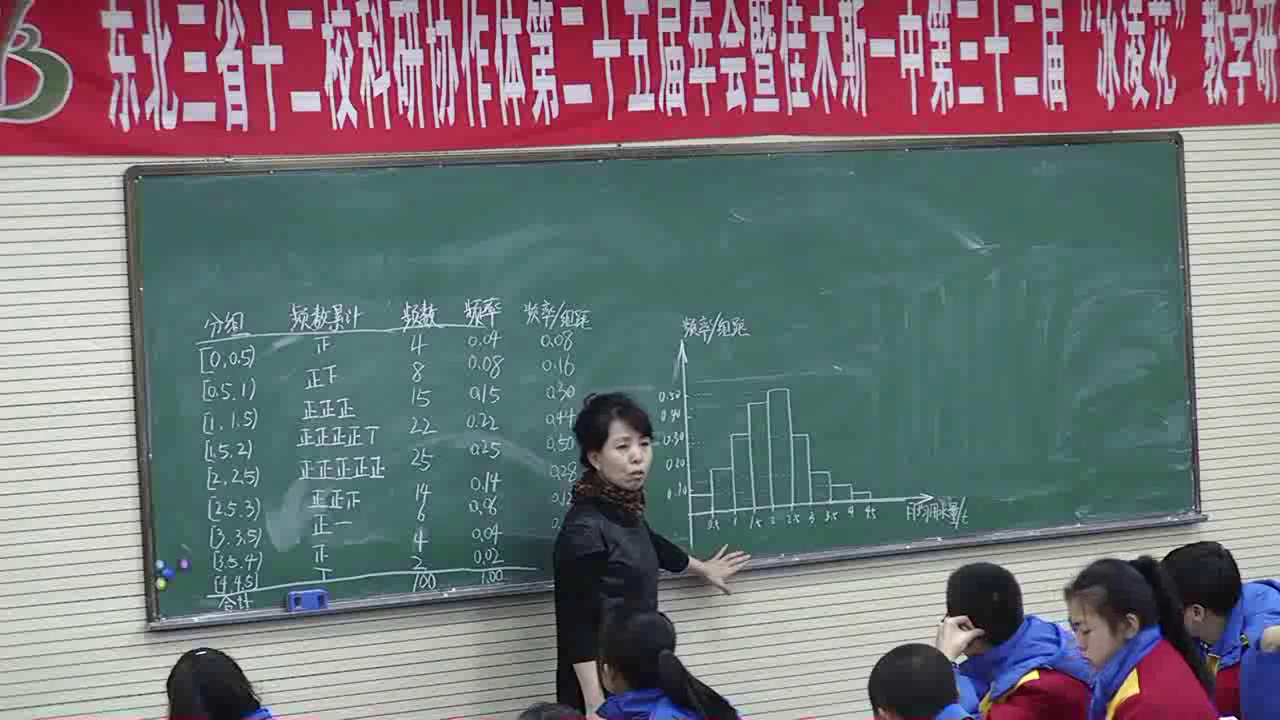 东北三省十二校科研协作体第二十五届年会暨佳木斯一中第三十二届“冰凌花”教学研
分组 频数累计 频数 频率 频率/组距
[0,0.5) 正 4 0.04 0.08
[0.5,1) 正下 8 0.08 0.16
[1,1.5) 正正正 15 0.15 0.30
[1.5,2) 正正正正丅 22 0.22 0.44
[2,2.5) 正正正正正 25 0.25 0.50
[2.5,3) 正正正 14 0.14 0.28
[3,3.5) 正一 6 0.06 0.12
[3.5,4) 正 4 0.04
[4,4.5] 丅 2 0.02
合计 100 1.00
频率/组距
0.50
0.40
0.30
0.20
0.10
0.5 1 1.5 2 2.5 3 3.5 4 4.5 月均用水量/t